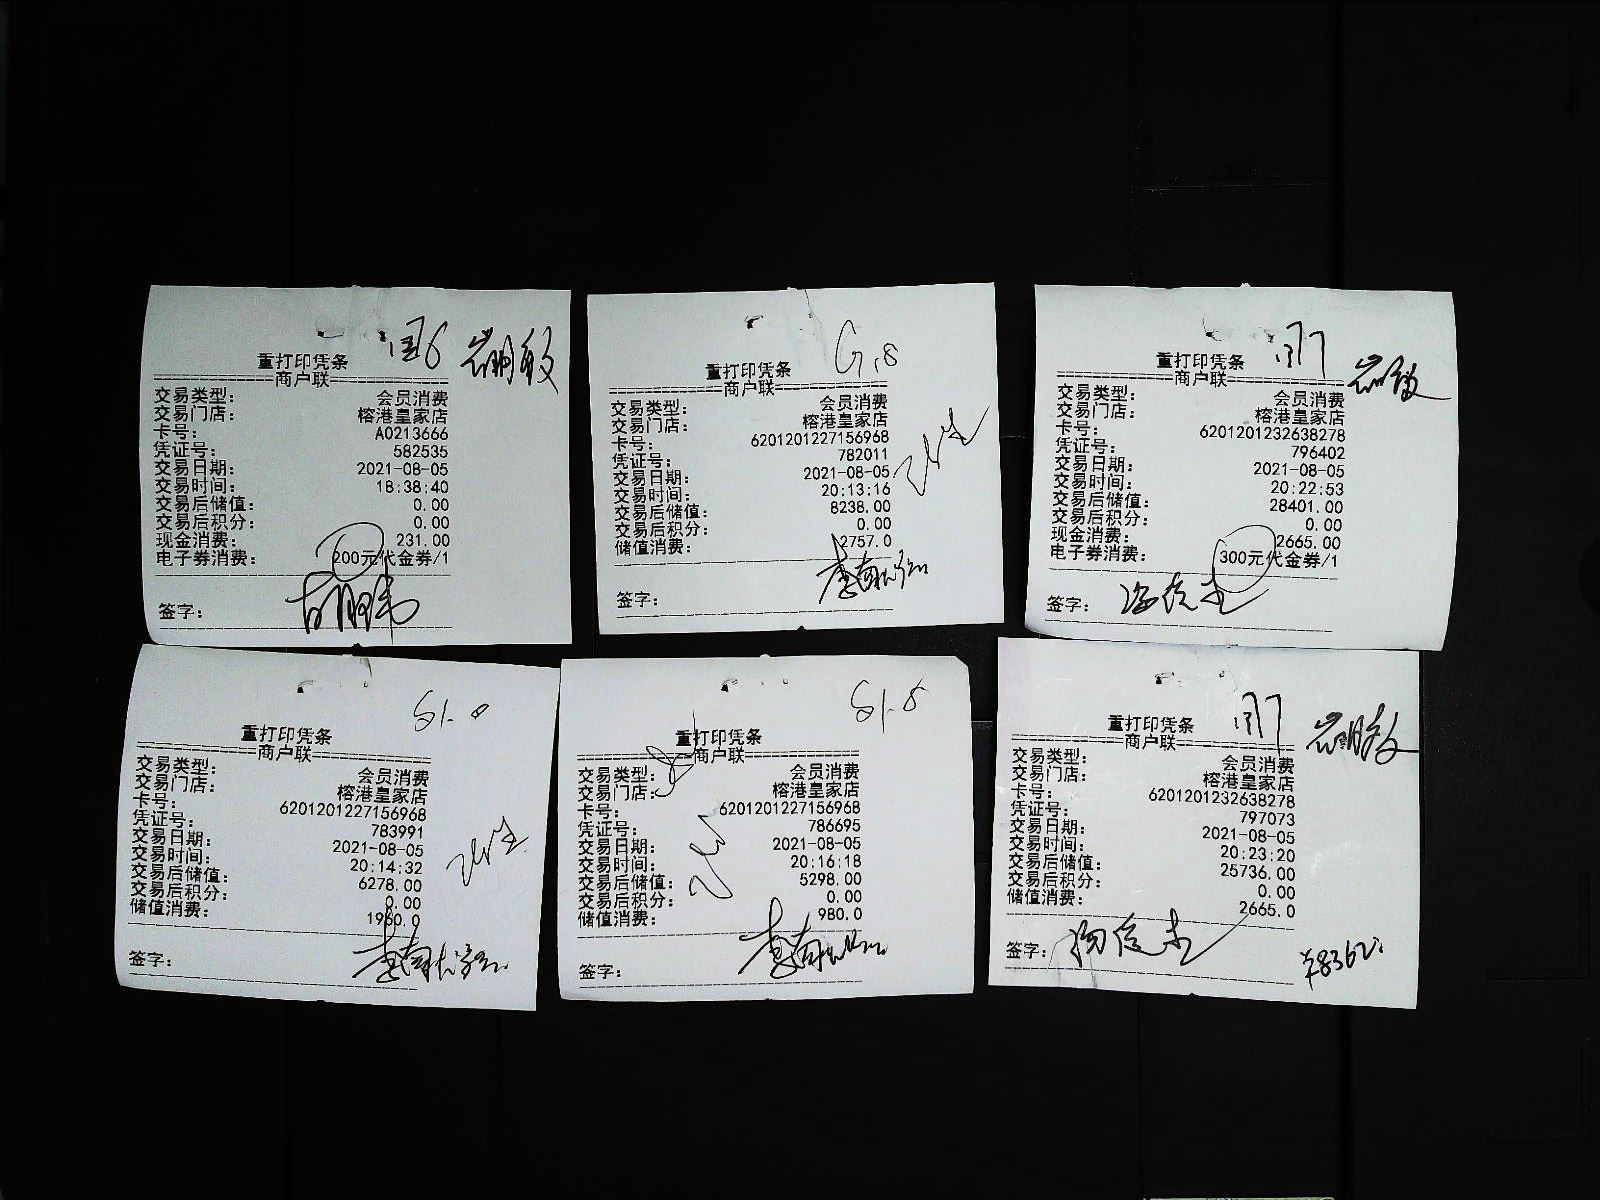 重打印凭条
商户联
交易类型： 会员消费
交易门店： 榕港皇家店
卡号： A0213666
凭证号： 582535
交易日期： 2021-08-05
交易时间： 18:38:40
交易后储值： 0.00
交易后积分： 0.00
现金消费： 231.00
电子券消费： 200元代金券/1
签字：
G.8
重打印凭条
商户联
交易类型： 会员消费
交易门店： 榕港皇家店
卡号： 6201201227156968
凭证号： 782011
交易日期： 2021-08-05
交易时间： 20:13:16
交易后储值： 8238.00
交易后积分： 0.00
储值消费： 2757.0
签字：
重打印凭条
商户联
交易类型： 会员消费
交易门店： 榕港皇家店
卡号： 6201201232638278
凭证号： 796402
交易日期： 2021-08-05
交易时间： 20:22:53
交易后储值： 28401.00
交易后积分： 0.00
现金消费： 2665.00
电子券消费： 300元代金券/1
签字：
重打印凭条
商户联
交易类型： 会员消费
交易门店： 榕港皇家店
卡号： 6201201227156968
凭证号： 783991
交易日期： 2021-08-05
交易时间： 20:14:32
交易后储值： 6278.00
交易后积分： 0.00
储值消费： 1960.0
签字：
重打印凭条
商户联
交易类型： 会员消费
交易门店： 榕港皇家店
卡号： 6201201227156968
凭证号： 786695
交易日期： 2021-08-05
交易时间： 20:16:18
交易后储值： 5298.00
交易后积分： 0.00
储值消费： 980.0
签字：
重打印凭条
商户联
交易类型： 会员消费
交易门店： 榕港皇家店
卡号： 6201201232638278
凭证号： 797073
交易日期： 2021-08-05
交易时间： 20:23:20
交易后储值： 25736.00
交易后积分： 0.00
储值消费： 2665.0
签字：